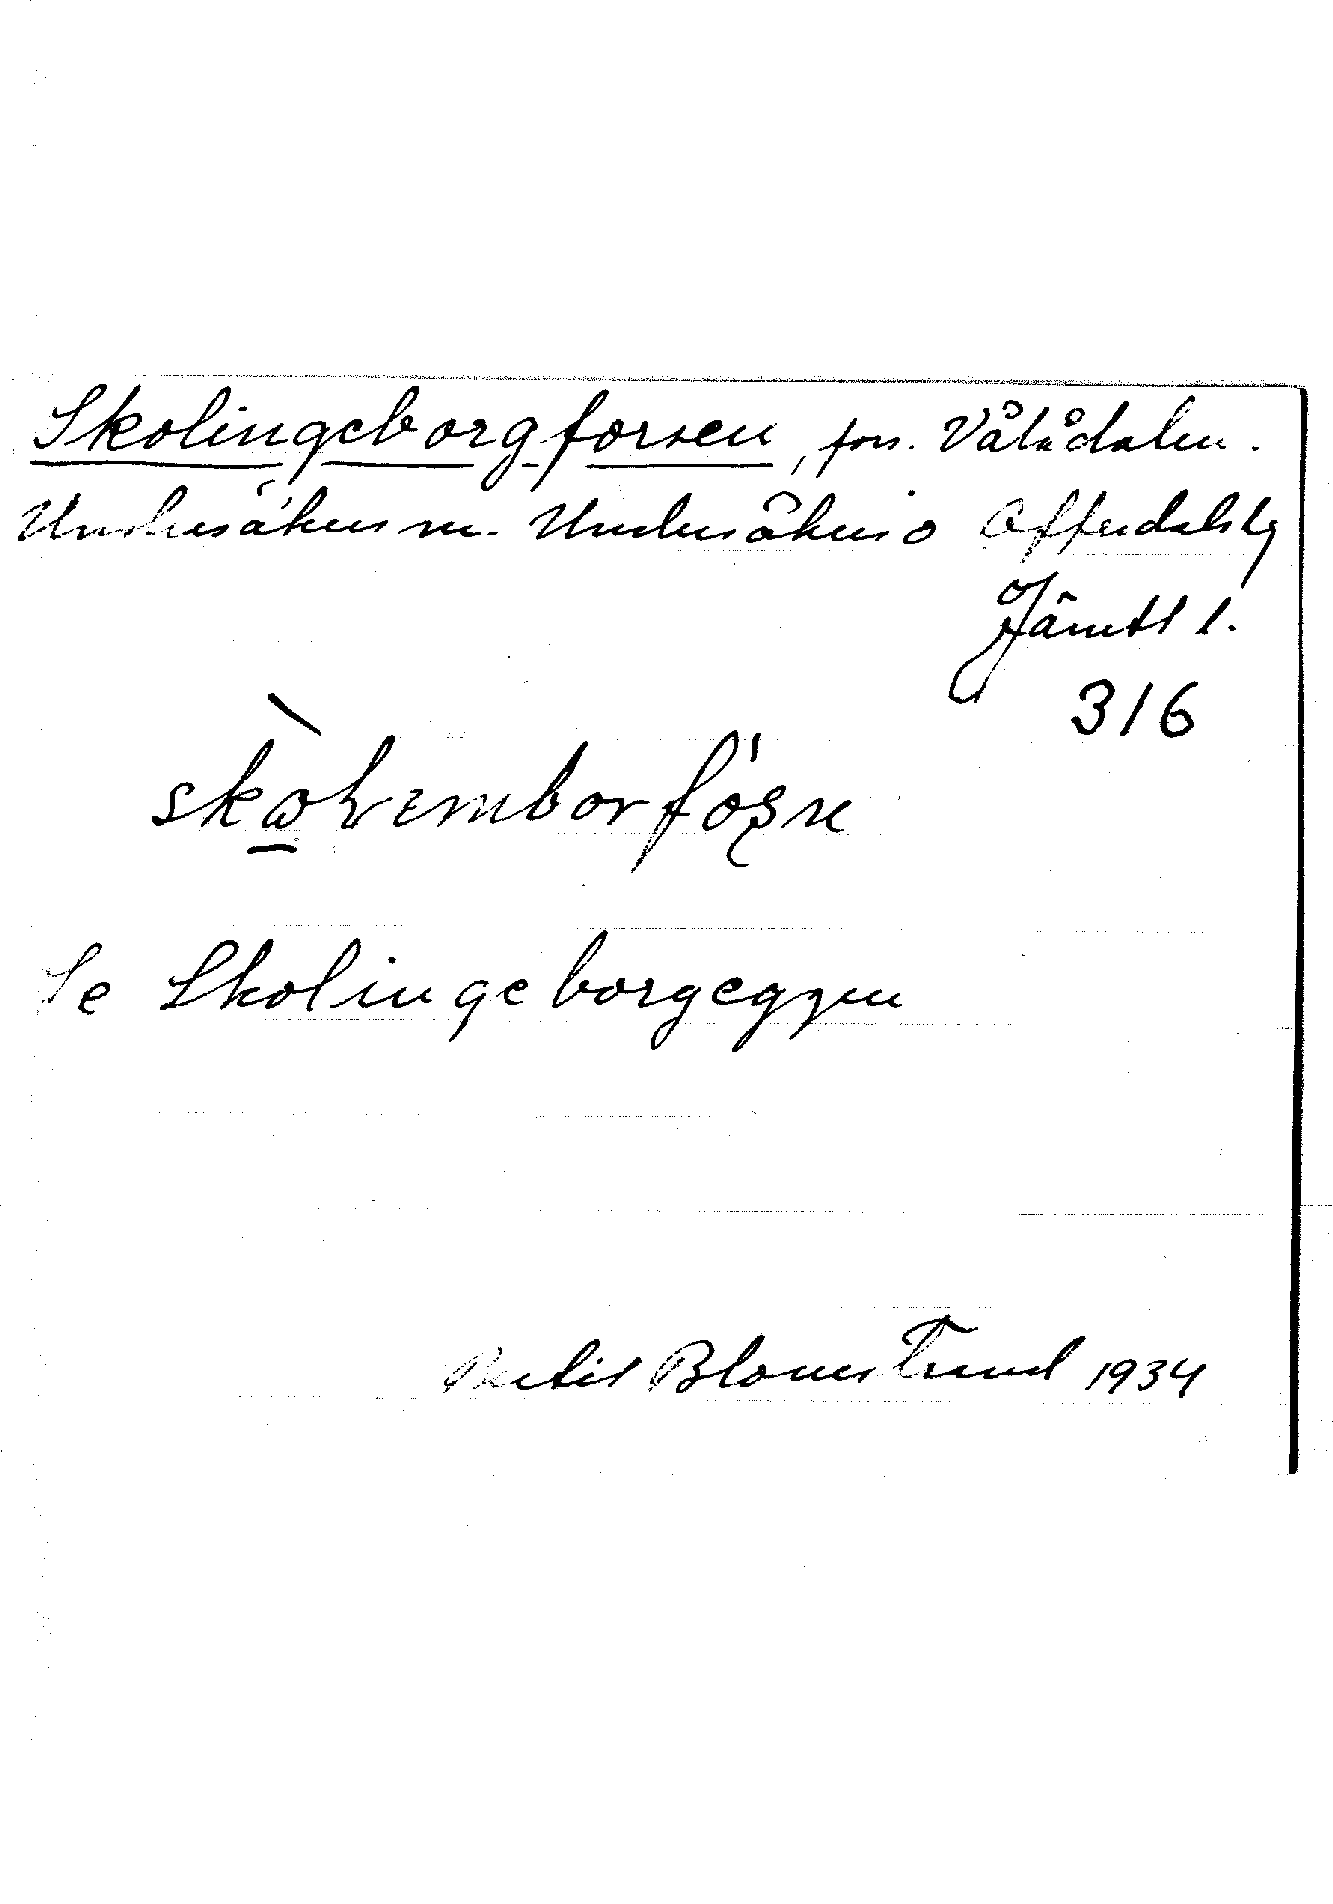 Skolingeborgforsen, fors. Vålådalen.
Undersåkers sn. Undersåkers o Offerdals tg
Jämtl l.
316
Se Skolingeborgeggen
Bertil Blomstrand 1934